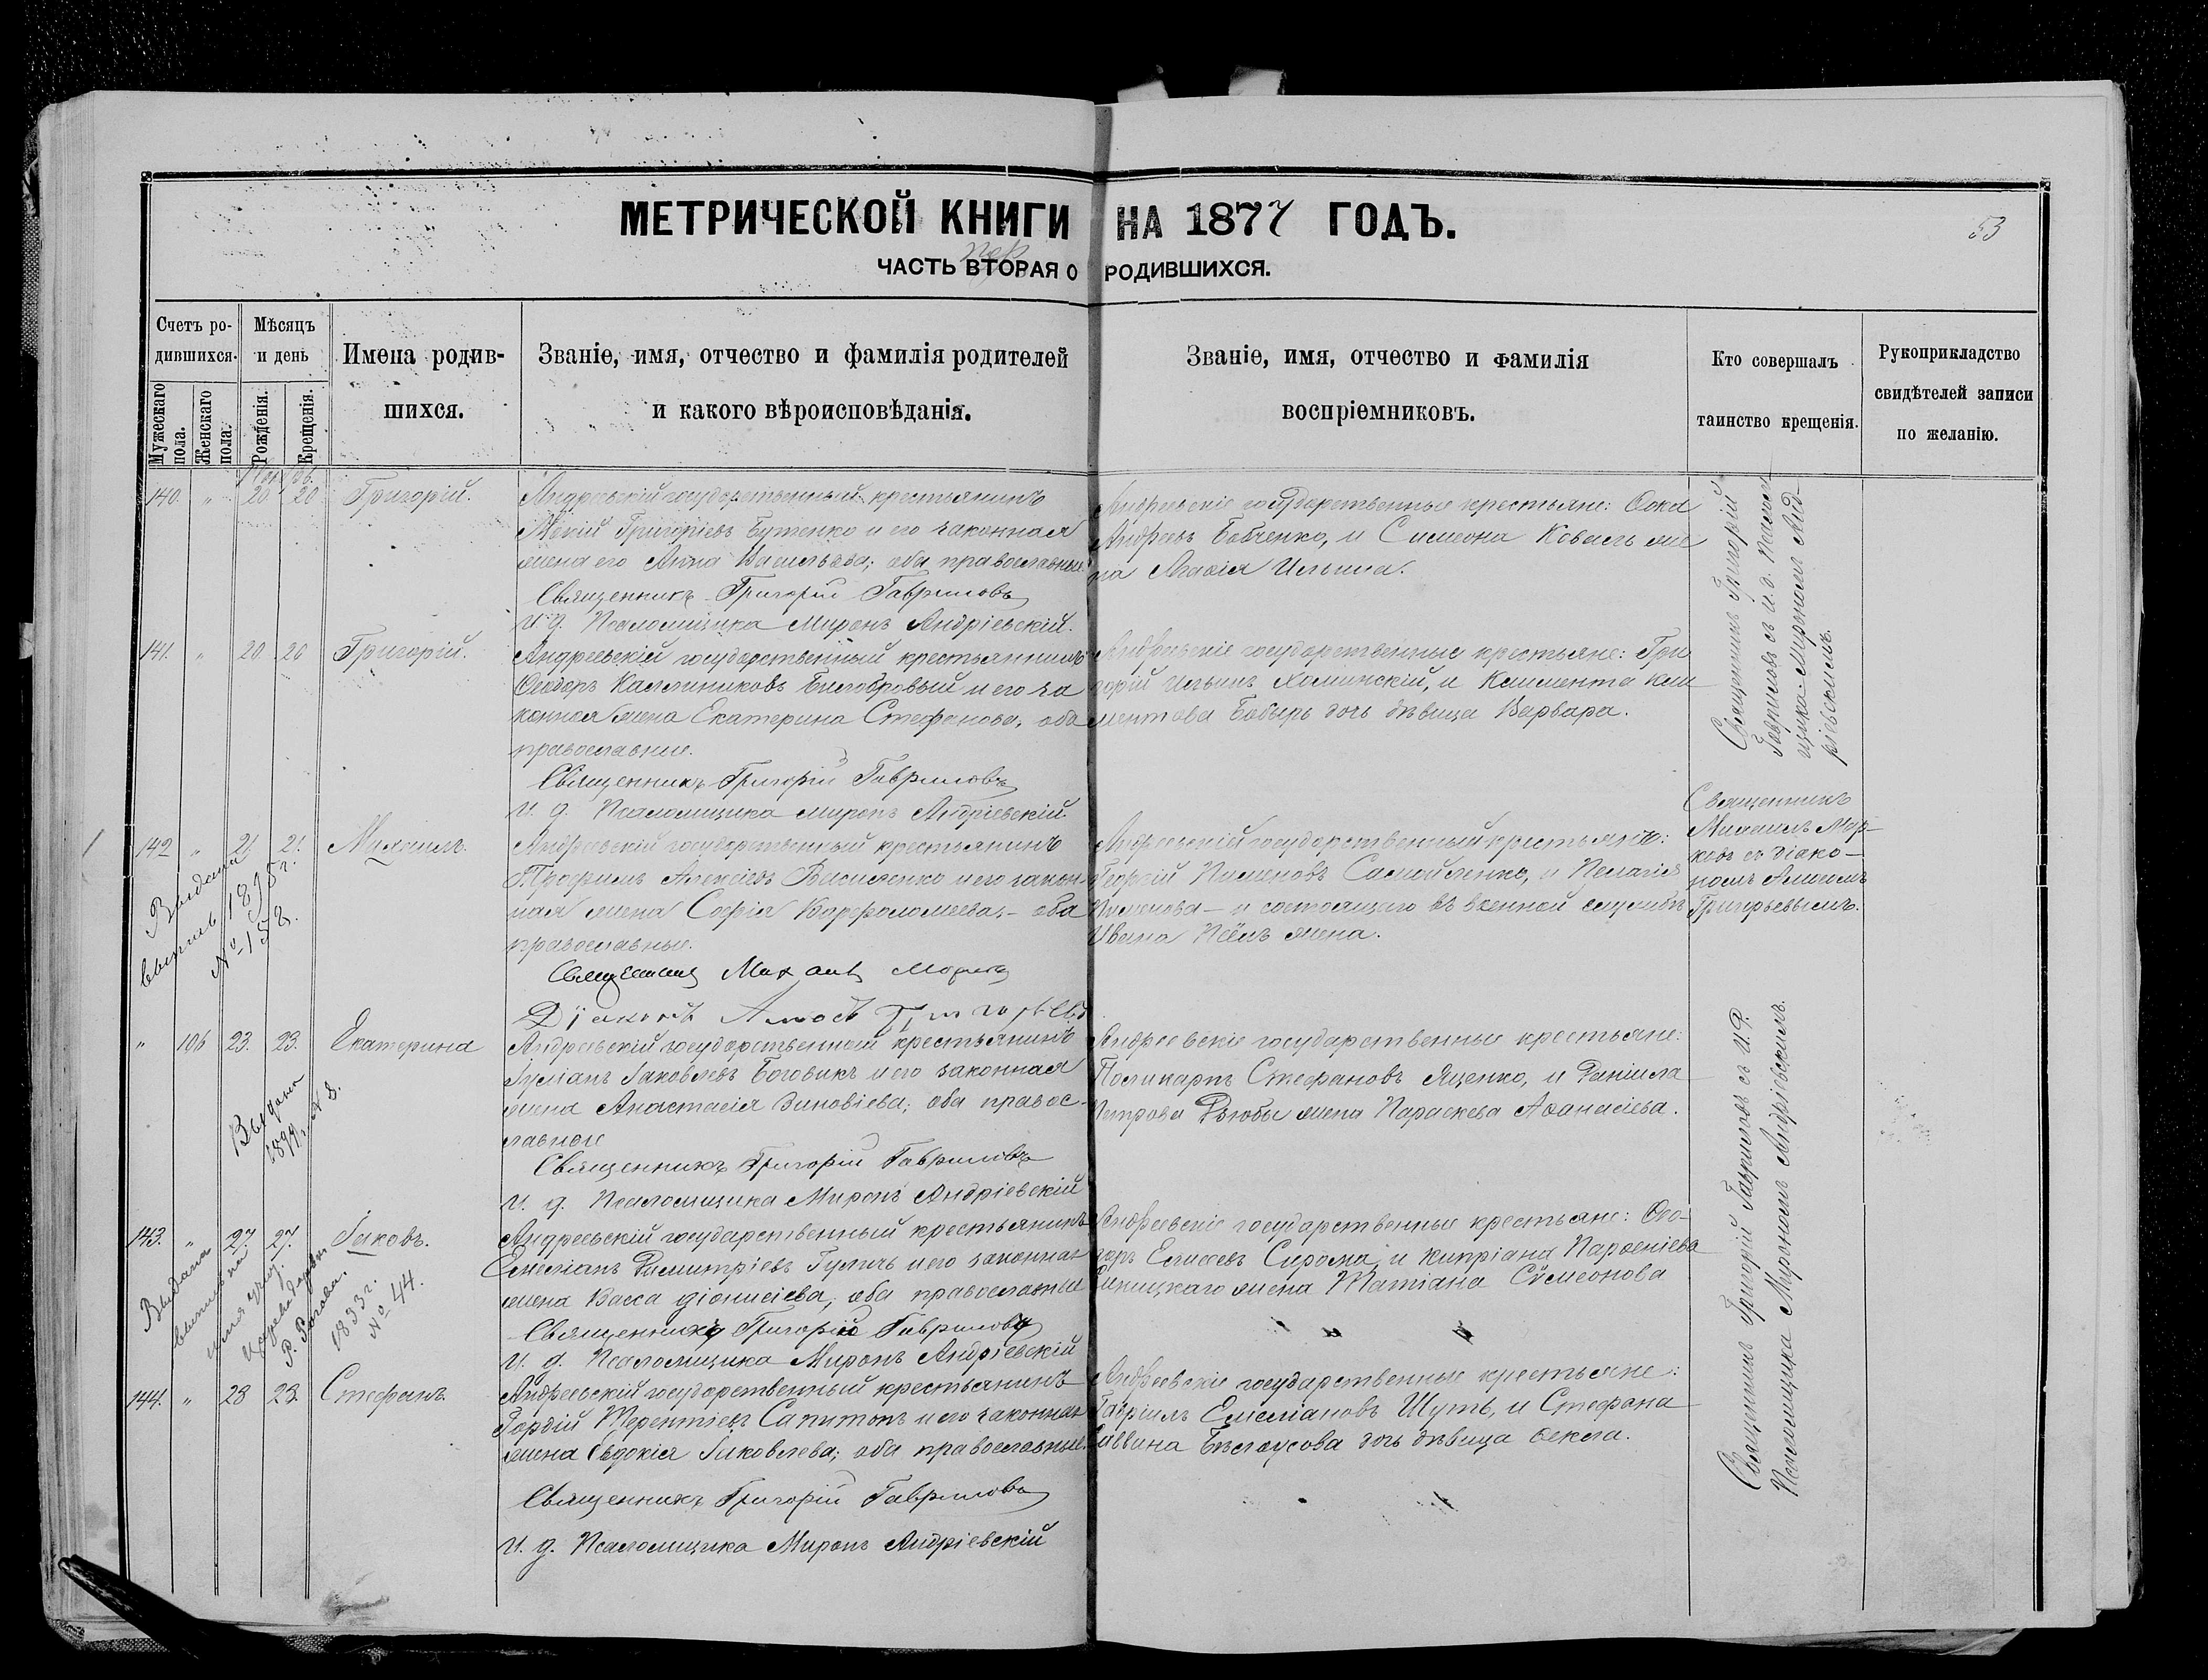 МЕТРИЧЕСКОЙ КНИГИ НА 1877 ГОДЪ.
53
ЧАСТЬ ВТОРАЯ О РОДИВШИХСЯ.
Счетъ родившихся.
Мужескаго пола.
Женскаго пола.
Мѣсяцъ и день
Рожденія.
Крещенія.
Имена родившихся.
Званіе, имя, отчество и фамилія родителей
и какого вѣроисповѣданія.
Званіе, имя, отчество и фамилія
воспріемниковъ.
Кто совершалъ
таинство крещенія.
Рукоприкладство
свидѣтелей записи
по желанію.
140. " 20 20 Григорій.
Андреевскій государственный крестьянинъ
Григоріевъ Бутенко и его законная
жена его Анна Васильева; оба православные
Священникъ Григорій Гавриловъ
И. д. Псаломщика Миронъ Андріевскій.
Андреевскіе государственные крестьяне: Ѳока
Андреевъ Бобченко, и Симеона Коваль же
на Агаѳія Ильина.
Священникъ Григорій
Гавриловъ съ и. д. Псалом
щика Мирономъ Анд-
ріевскимъ.
141. " 20 20 Григорій.
Андреевскій государственный крестьянинъ
Ѳеодоръ Каллиниковъ Билобровый и его за
конная жена Екатерина Стефанова, оба
православные.
Священникъ Григорій Гавриловъ
И. д. Псаломщика Миронъ Андріевскій
Андреевскіе государственные крестьяне: Гри
горій Ильинъ Хоминскій, и Климента Кли
ментова Бобырь дочь дѣвица Варвара.
142 " 21 21 Михаилъ.
Выдана
выпись 1895 г.
№ 152.
Андреевскій государственный крестьянинъ
Трофимъ Алексіевъ Василенко и его закон-
ная жена Софія Варфоломеева, - оба
православные.
Священникъ Михаилъ
Діаконъ Амосъ Григорьевъ
Андреевскій государственный крестьянинъ:
Георгій Пименовъ Самойленко, и Пелагія
Пименова - и состоящаго въ военной службѣ
Ивана жена.
Священникъ
Михаилъ Мар-
ковъ съ діако-
номъ Амосомъ
Григорьевымъ.
" 106 23. 23. Екатерина
Выдана
Андреевскій государственный крестьянинъ
Іуліанъ Іаковлевъ Боговикъ и его законная
жена Анастасія Зиновіева; оба правос-
лавные
Священникъ Григорій Гавриловъ
И. д. Псаломщика Миронъ Андріевскій
Андреевскіе государственные крестьяне:
Поликарпъ Стефановъ Яценко, и Даніила
Петрова Дзюбы жена Параскева Аѳанасіева.
Священникъ Григорій Гавриловъ съ И. Д.
Псаломщика Мирономъ Андріевскимъ.
143. " 27 27. Іаковъ.
Выдана
1893 г.
№ 44.
Андреевскій государственный крестьянинъ
Емеліанъ Димитріевъ Гуличъ и его законная
жена Васса Діонисіева, оба православные
Священникъ Григорій Гавриловъ
И. д. Псаломщика Миронъ Андріевскій
Андреевскіе государственные крестьяне: Ѳео-
доръ Елисеевъ Сирома, и Кипріана Парѳеніева
жена Татіана Сѵмеонова
144. " 28 28. Стефанъ.
Андреевскій государственный крестьянинъ
Гордій Терентіевъ Сапитонъ и его законная
жена Евдокія Іаковлева, оба православные
Священникъ Григорій Гавриловъ
И. д. Псаломщика Миронъ Андріевскій
Андреевскіе государственные крестьяне:
Гавріилъ Емеліановъ Шуть, и Стефана
Саввина Бѣлоусова дочь дѣвица Ѳекла.